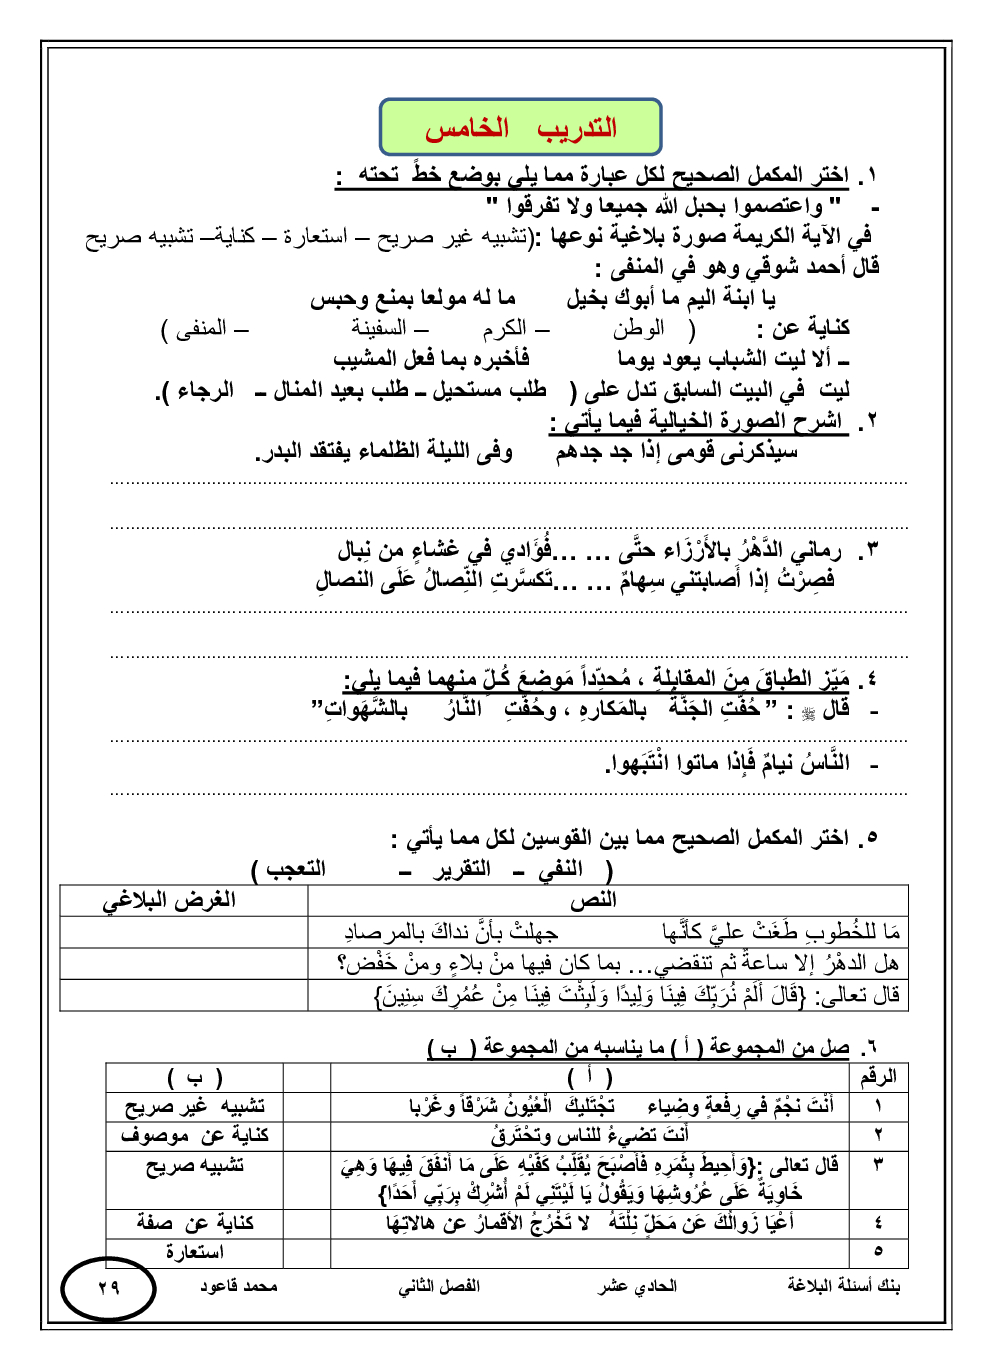 التدريب الخامس
١. اختر المكمل الصحيح لكل عبارة مما يلي بوضع خطً تحته :
- " واعتصموا بحبل الله جميعا ولا تفرقوا "
في الآية الكريمة صورة بلاغية نوعها :(تشبيه غير صريح – استعارة – كناية– تشبيه صريح
قال أحمد شوقي وهو في المنفى :
يا ابنة اليم ما أبوك بخيل ما له مولعا بمنع وحبس
كناية عن : ( الوطن – الكرم – السفينة – المنفى )
– ألا ليت الشباب يعود يوما فأخبره بما فعل المشيب
ليت في البيت السابق تدل على ( طلب مستحيل – طلب بعيد المنال – الرجاء ).
٢. اشرح الصورة الخيالية فيما يأتي :
سيذكرنى قومى إذا جد جدهم وفى الليلة الظلماء يفتقد البدر.
٣. رماني الدَّهْرُ بالأَرْزَاء حتَّى ... ...فُؤَادي في غشاءٍ من نِبال
فصِرْتُ إذا أَصابتني سِهامٌ ... ...تَكسَّرتِ النِّصالُ عَلَى النصالِ
٤. مَيّز الطباقَ مِنَ المقابلةِ ، مُحدِّداً مَوضِعَ كُلِّ منهما فيما يلي:
- قال ﷺ : ” حُفَّتِ الجَنَّةُ بالمَكارهِ ، وحُفَّتِ النَّارُ بالشَّهَواتِ”
- النَّاسُ نيامٌ فَإذا ماتوا انْتَبَهوا.
٥. اختر المكمل الصحيح مما بين القوسين لكل مما يأتي :
( النفي – التقرير – التعجب )
النص الغرض البلاغي
مَا للخُطوبِ طَغَتْ عليَّ كأنَّها جهلتْ بأنَّ نداكَ بالمرصادِ
هل الدهْرُ إلا ساعةٌ ثم تنقضي... بما كان فيها منْ بلاءٍ ومنْ خَفْض؟
قال تعالى: {قَالَ أَلَمْ نُرَبِّكَ فِينَا وَلِيدًا وَلَبِثْتَ فِينَا مِنْ عُمُرِكَ سِنِينَ}
٦. صل من المجموعة ( أ ) ما يناسبه من المجموعة ( ب )
الرقم ( أ ) ( ب )
١ أَنْتَ نجْمٌ في رِفْعةٍ وضِياء تجْتَليكَ الْعُيُونُ شَرْقاً وغَرْبا تشبيه غير صريح
٢ أنتَ تضيءُ للناس وتحْتَرقُ كناية عن موصوف
٣ قال تعالى :{وَأُحِيطَ بِثَمَرِهِ فَأَصْبَحَ يُقَلِّبُ كَفَّيْهِ عَلَى مَا أَنْفَقَ فِيهَا وَهِيَ تشبيه صريح
خَاوِيَةٌ عَلَى عُرُوشِهَا وَيَقُولُ يَا لَيْتَنِي لَمْ أُشْرِكْ بِرَبِّي أَحَدًا}
٤ أعْيَا زَوالُكَ عَن مَحَلٍّ نِلْتَهُ لا تَخْرُجُ الأقمارُ عن هالاتِهَا كناية عن صفة
٥ استعارة
بنك أسئلة البلاغة الحادي عشر الفصل الثاني محمد قاعود ٢٩